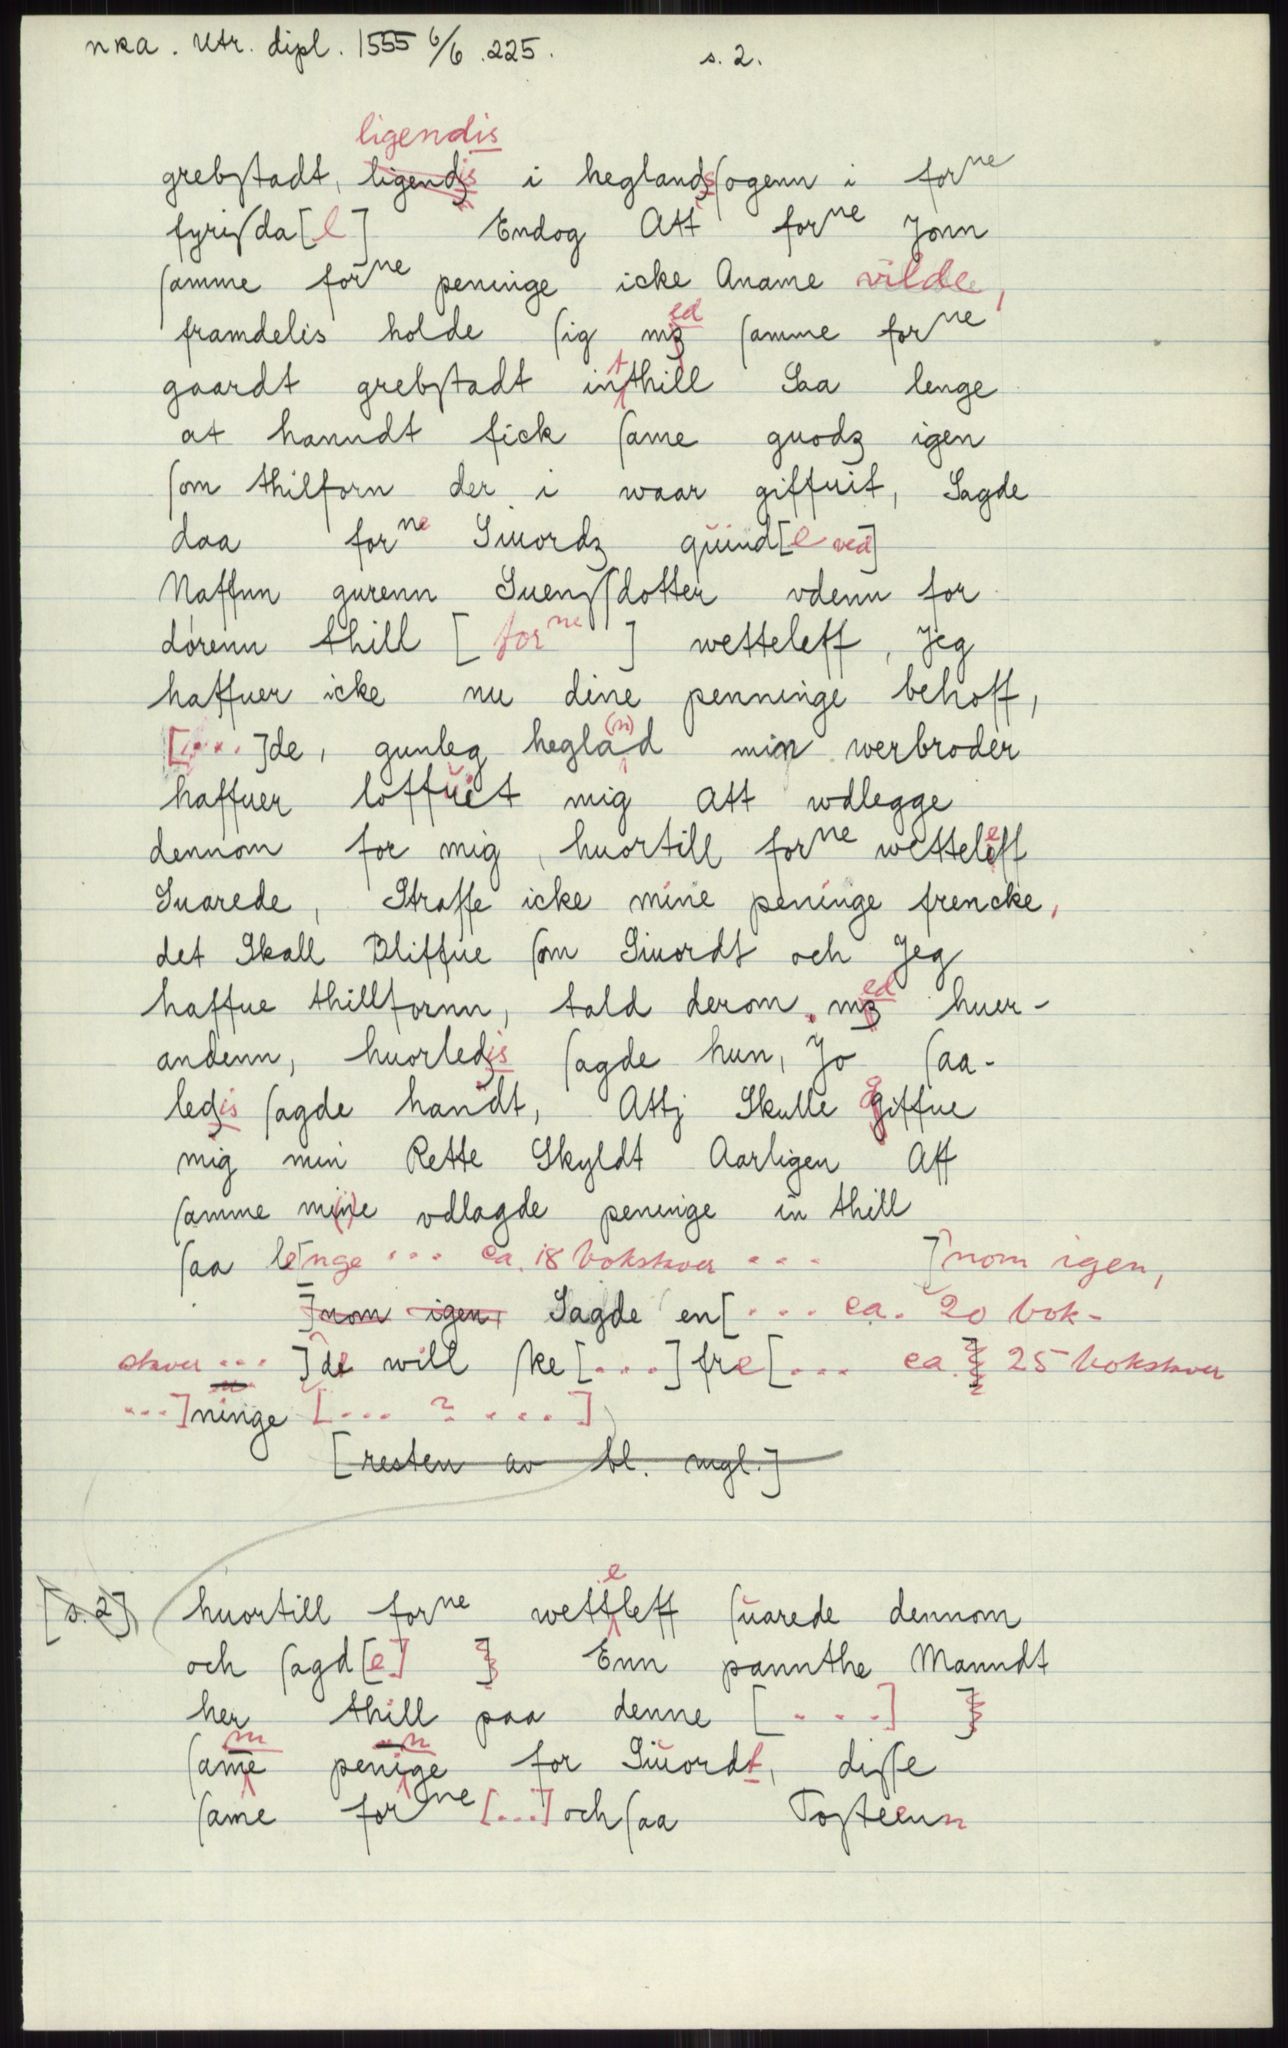 NRA. Utr. dipl. 1555 6/6 .225. s. 2.
ligendis
grebstadt, ligendis i heglandsogenn i forne
fyrisda[l] Endog Att forne Jonn
samme forne peninge icke Aname vilde,
framdelis holde sig med samme forne
gaardt grebstadt intthill Saa lenge
at hanndt fick same guodz igen
som thilforn der i waar giffuit, Sagde
daa forne Siuordz quind[e ved]
Naffnn gurenn Suensdotter vdenn for
dørenn thill [forne] wetteleff, Jeg
haffuer icke nu dine penninge behoff,
[....]de, gunleg hegla(n)d min werbroder
haffuer loffuet mig Att wdlegge
dennom for mig, huortill forne wetteleff
Suarede, Straffe icke mine peninge frencke,
det Skall Bliffue som Siuordt och Jeg
haffue thillfornn, tald derom, med huer-
andenn, huorledis sagde hun, Jo saa-
ledis sagde handt, Attj Skulle giffue
mig min Rette Skyldt Aarligen Aff
samme mi(n)e vdlagde peninge in thill
saa le[nge ... ca. 18 bokstaver ... ]nom igen,
]nom igen, Sagde en[... ca. 20 bok-
staver ...]de will ske[...]fre[... ca. 25 bokstaver
...]ninge [... ? ....]
[resten av bl. mgl.]
[s. 2] huortill forne wetteleff suarede dennom
och sagd[e] Enn pannthe Manndt
her thill paa denne [....]
samme peninge for Siuordt, disse
same forne [...] och saa Tosteenn